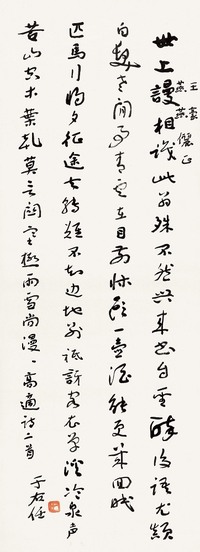 世上謾相識此翁殊不然興來書自聖醉後語尤顛
白髮老閒事青雲在目前床頭一壺酒能更幾回眠
匹馬行將夕征途去轉難不知邊地別祗訝客衣單溪冷泉声
苦山空木葉乾莫言關塞極雨雪尚漫漫 高適詩二首
于右任
王
燕燕 儷正